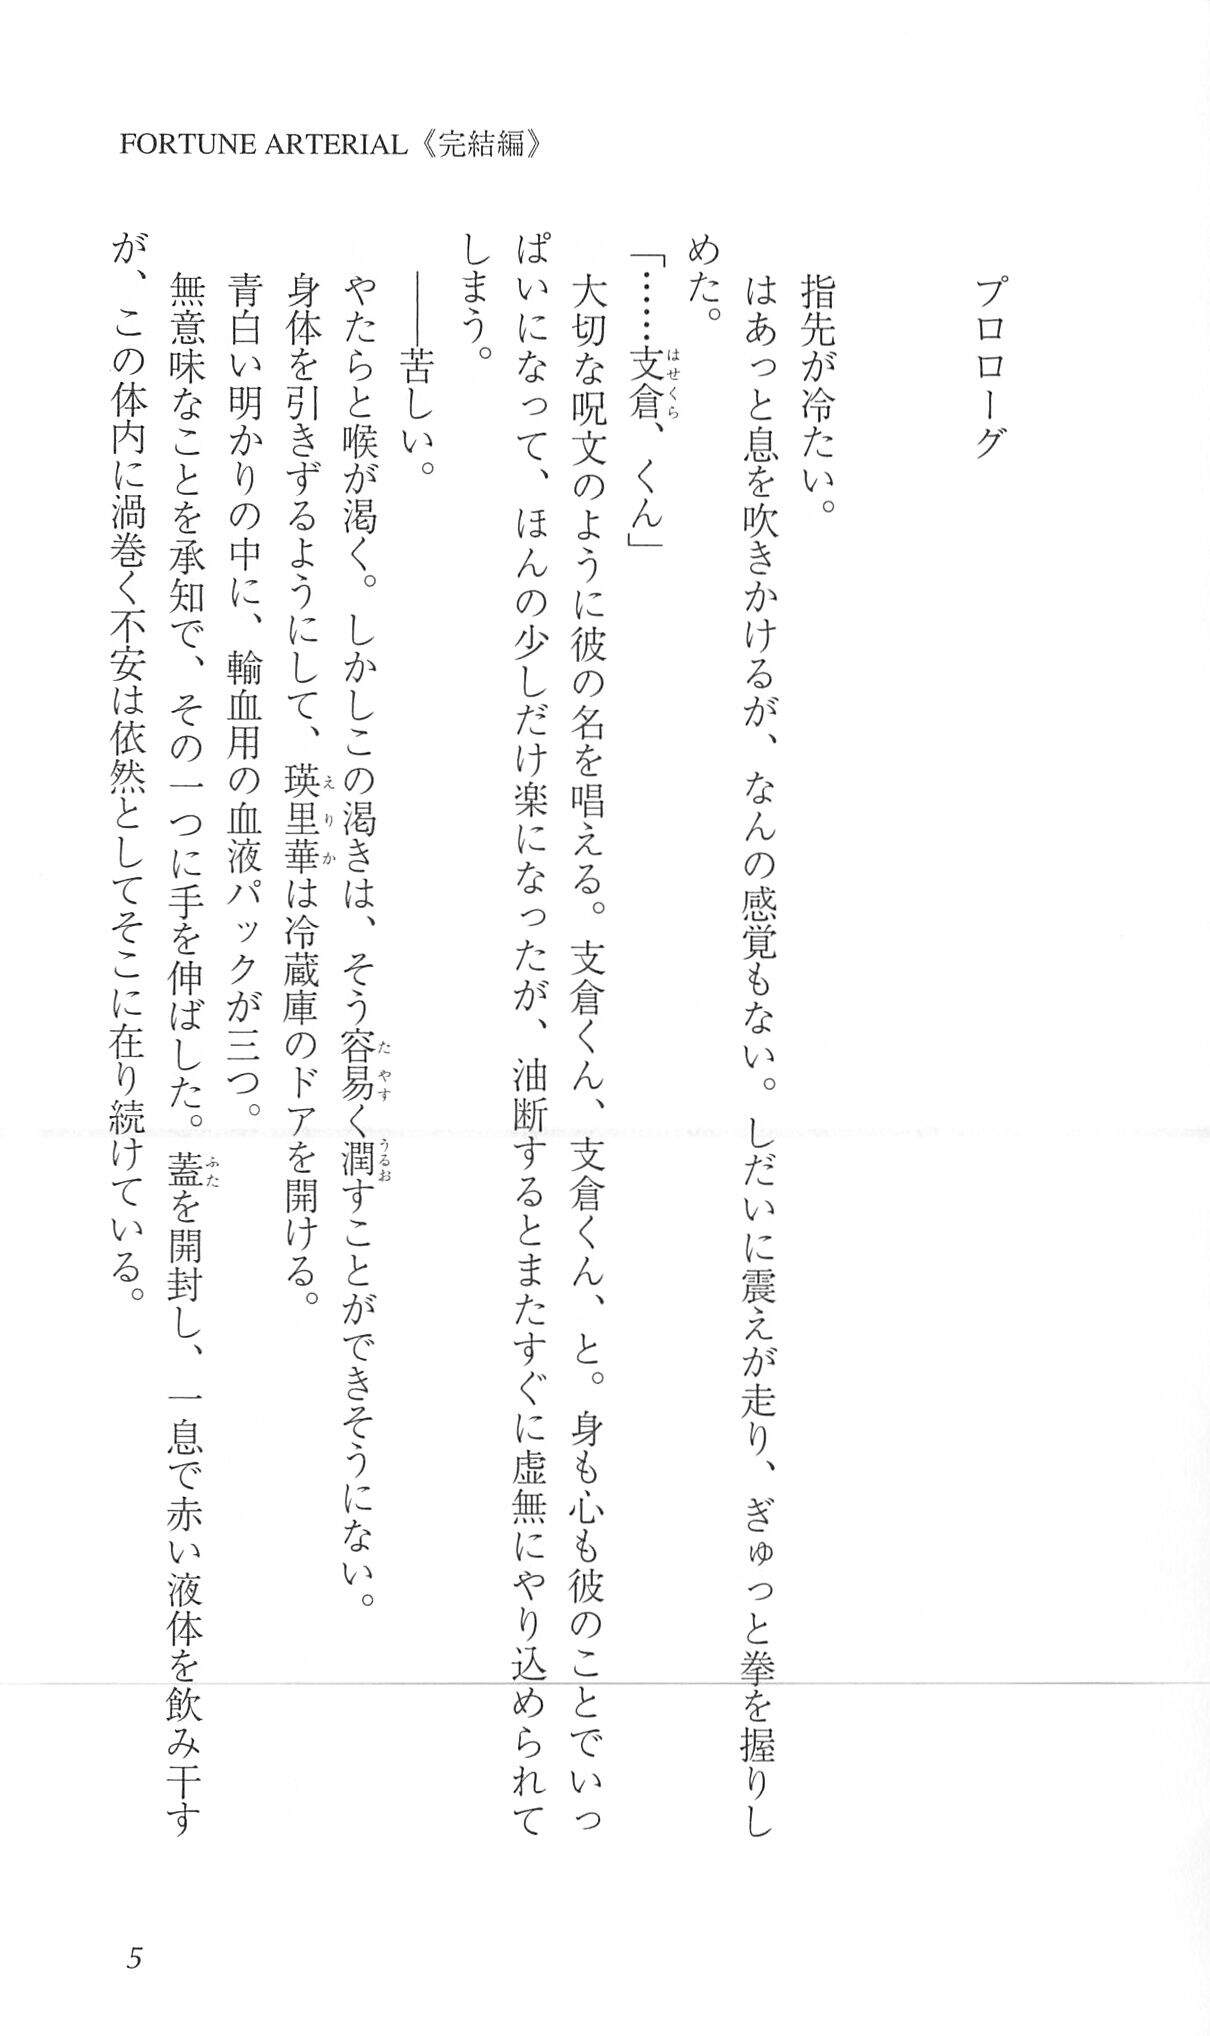 FORTUNE ARTERIAL《完結編》
プロローグ
指先が冷たい。
はあっと息を吹きかけるが、なんの感覚もない。しだいに震えが走り、ぎゅっと拳を握りし
めた。
「……支倉、くん」
大切な呪文のように彼の名を唱える。支倉くん、支倉くん、と。身も心も彼のことでいっ
ぱいになって、ほんの少しだけ楽になったが、油断するとまたすぐに虚無にやり込められて
しまう。
――苦しい。
やたらと喉が渇く。しかしこの渇きは、そう容易く潤すことができそうにない。
身体を引きずるようにして、瑛里華は冷蔵庫のドアを開ける。
青白い明かりの中に、輸血用の血液パックが三つ。
無意味なことを承知で、その一つに手を伸ばした。蓋を開封し、一息で赤い液体を飲み干す
が、この体内に渦巻く不安は依然としてそこに在り続けている。
5